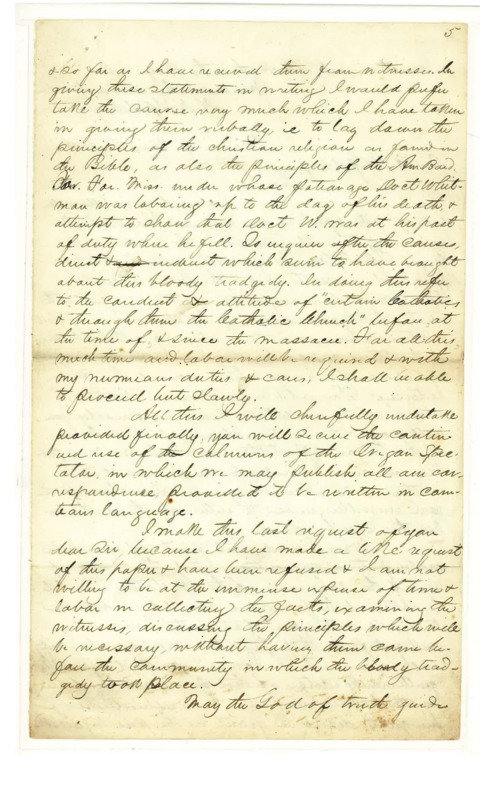 5
& so far as I have received them from witnesses. In
giving these statements in writing I would prefer
take the course very much which I have taken
in giving them verbally, ie to lay down the
principles of the christian religion as found in
the Bible, as also the principles of the Am. Board.
Com. For. Miss. under whose patronage Doct Whit-
man was laboring up to the day of his death, &
attempt to show that Doct W. was at his post
of duty when he fell. To inquire after the causes,
direct & indirect which seem to have brought
about this bloody tradgedy. In doing this refer
to the conduct & attitude of certain Catholics
& through them the Catholic Church" before, at
the time of, & since the massacre. For all this
much time and labor will be required & with
my numerous duties & cares, I shall be able
to proceed but slowly.
All this I will cheerfully undertake
provided finally, you will secure the contin
ued use of the columns of the Oregon Spec
tator, in which we may publish all our cor-
respondence, provided it be written in cour-
teous language.
I make this last request of you
dear Sir, because I have made a like request
of this paper & have been refused & I am not
willing to be at the immense expense of time &
labor in collecting the facts, examining the
witnesses, discussing the principles which will
be necessary, without having them come be-
fore the community in which the bloody trad-
gedy took place.
May the God of truth guide